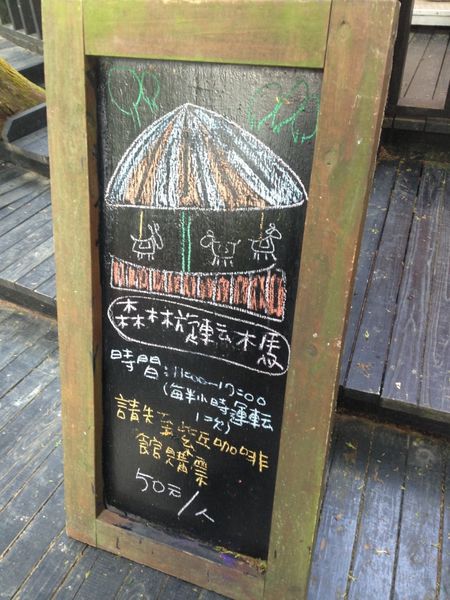 森林旋転木馬
時間:11:00~17:00
(每半小時運転
1次)
請先至 咖啡
館購票
50元/人